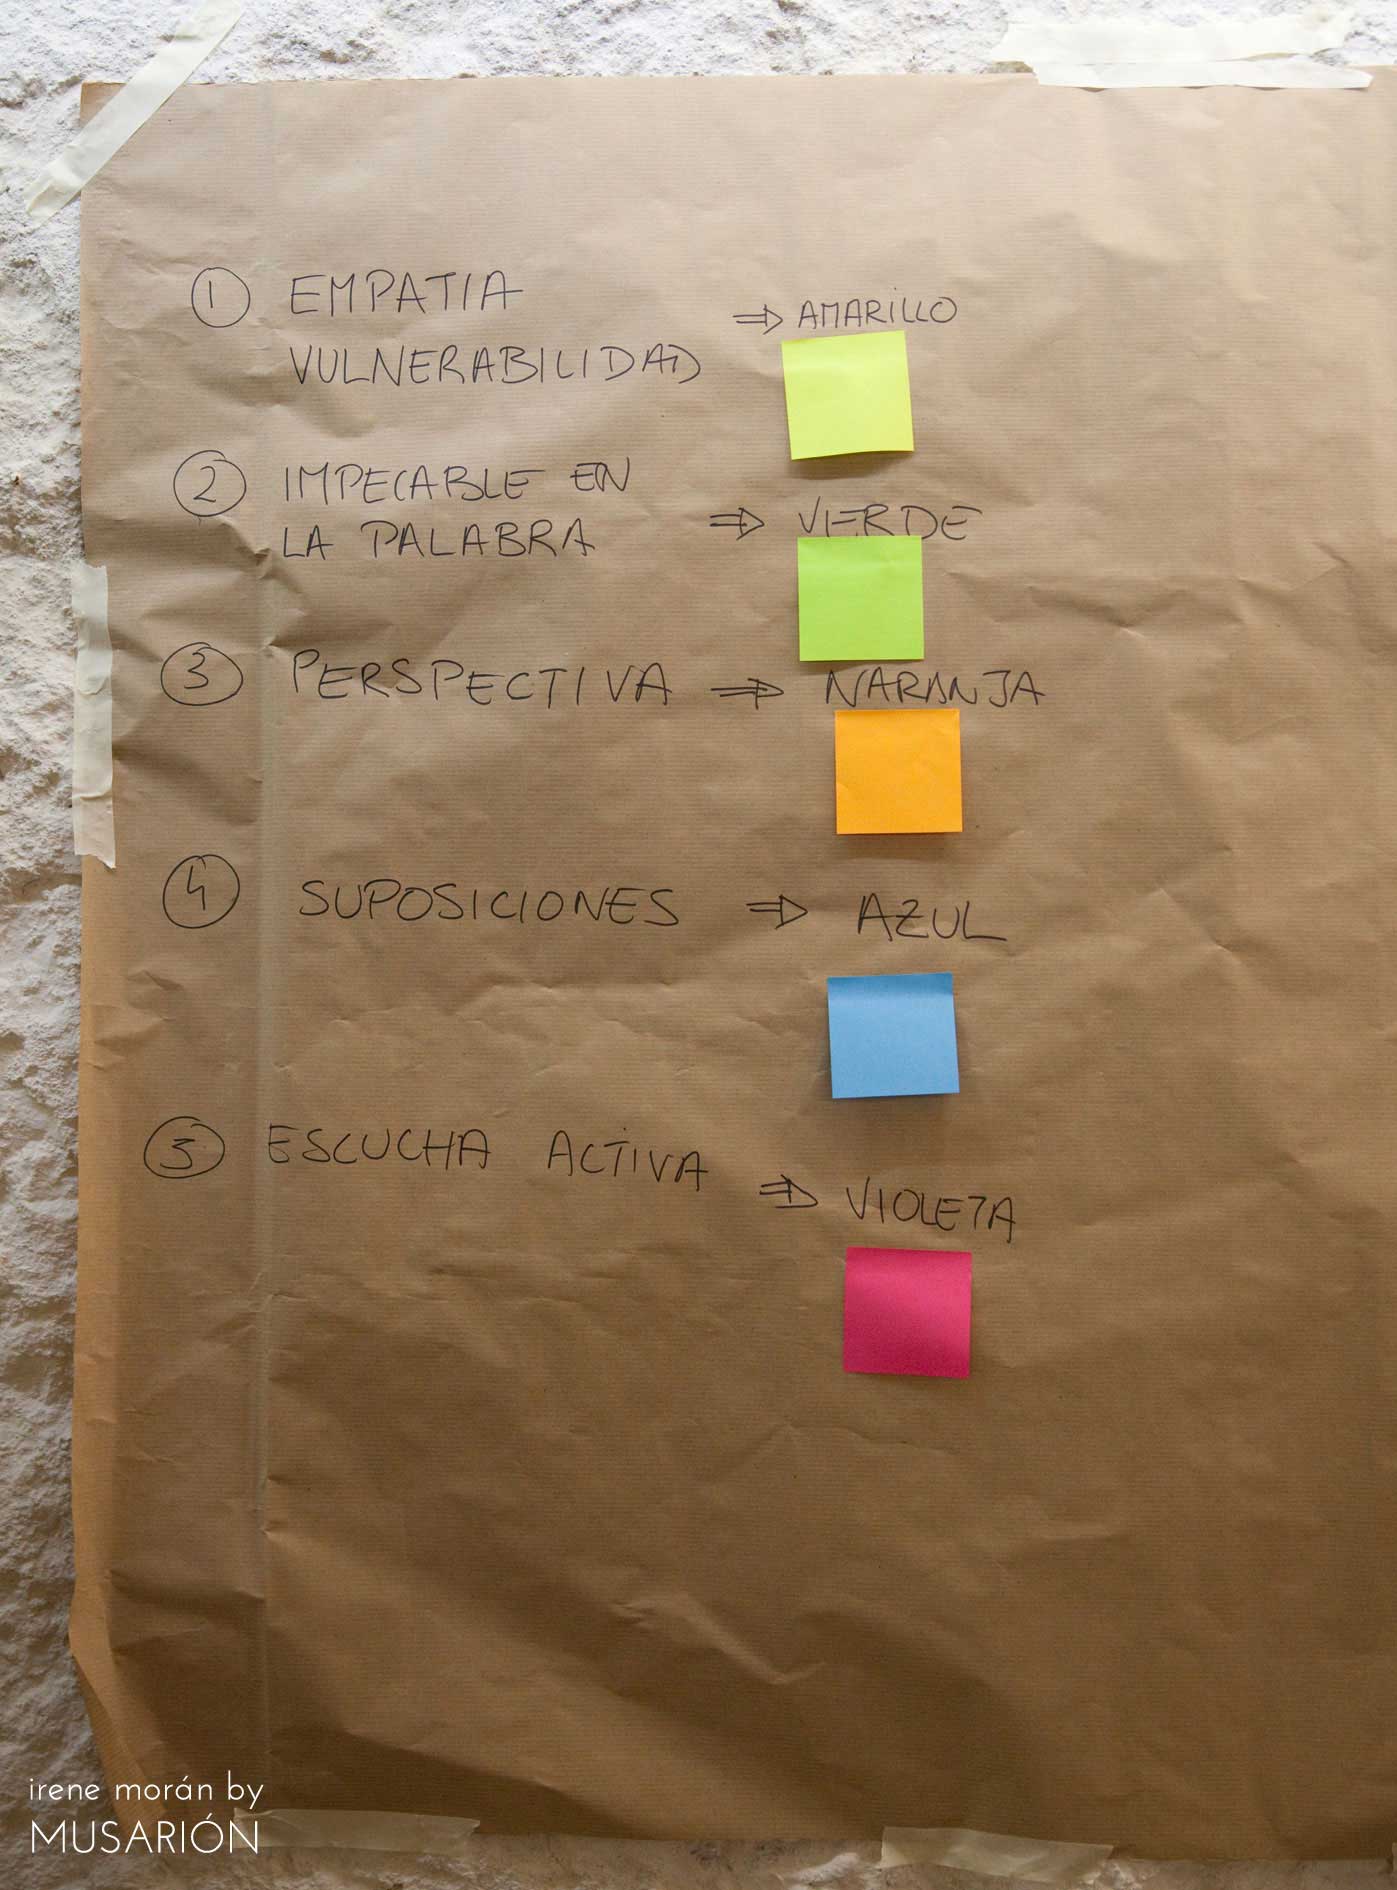 1 EMPATIA
VULNERABILIDAD ⇒ AMARiLLO
2 IMPECABLE EN
LA PALABRA ⇒ VERDE
3 PERSPECTIVA ⇒ NARANJA
4 SUPOSICIONES ⇒ AZUL
5 ESCUCHA ACTiVA ⇒ VIOLETA
irene morán by
MUSARIÓN